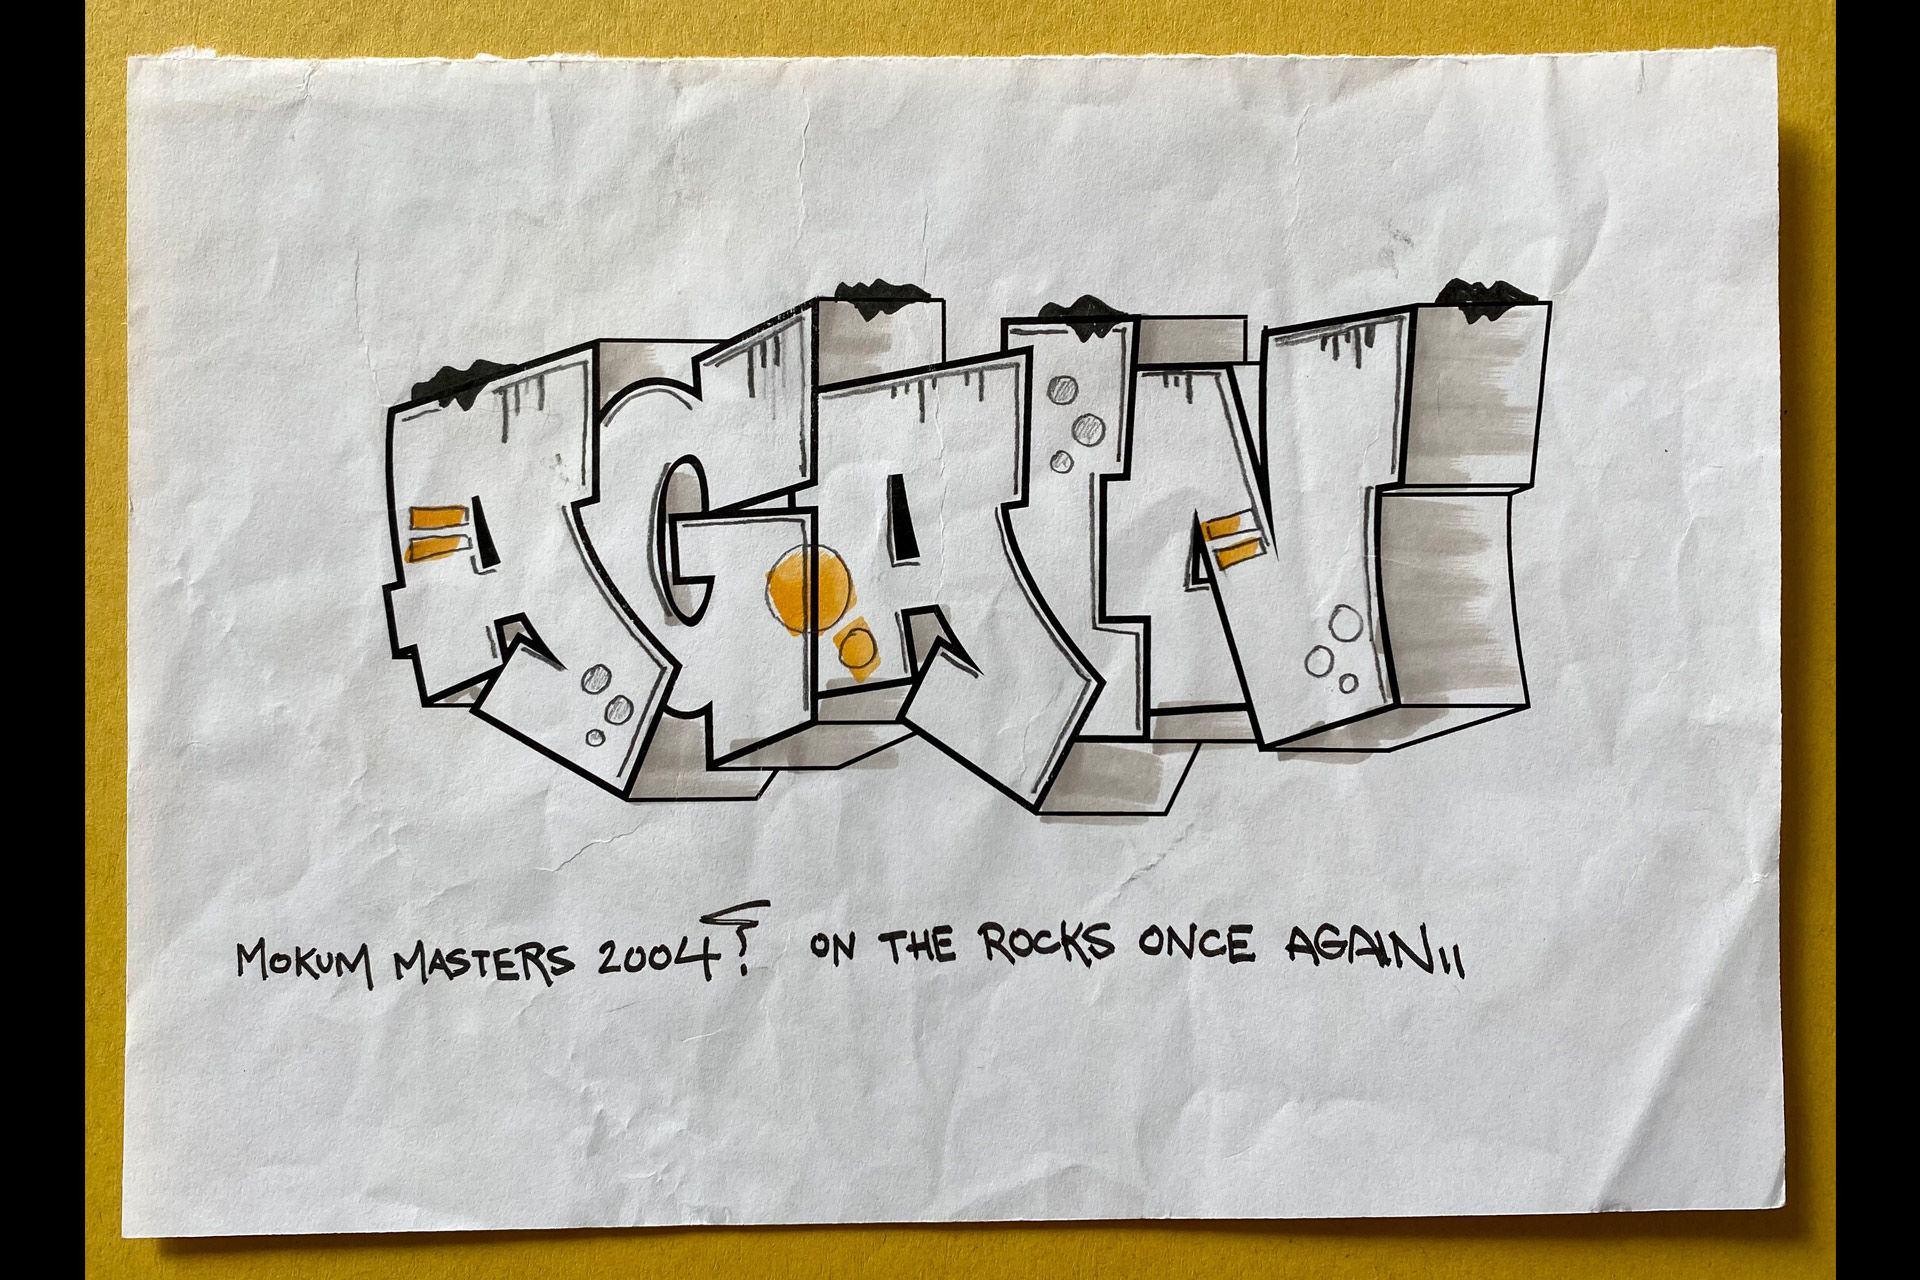 AGAIN
MOKUM MASTERS 2004? ON THE ROCKS ONCE AGAIN!!